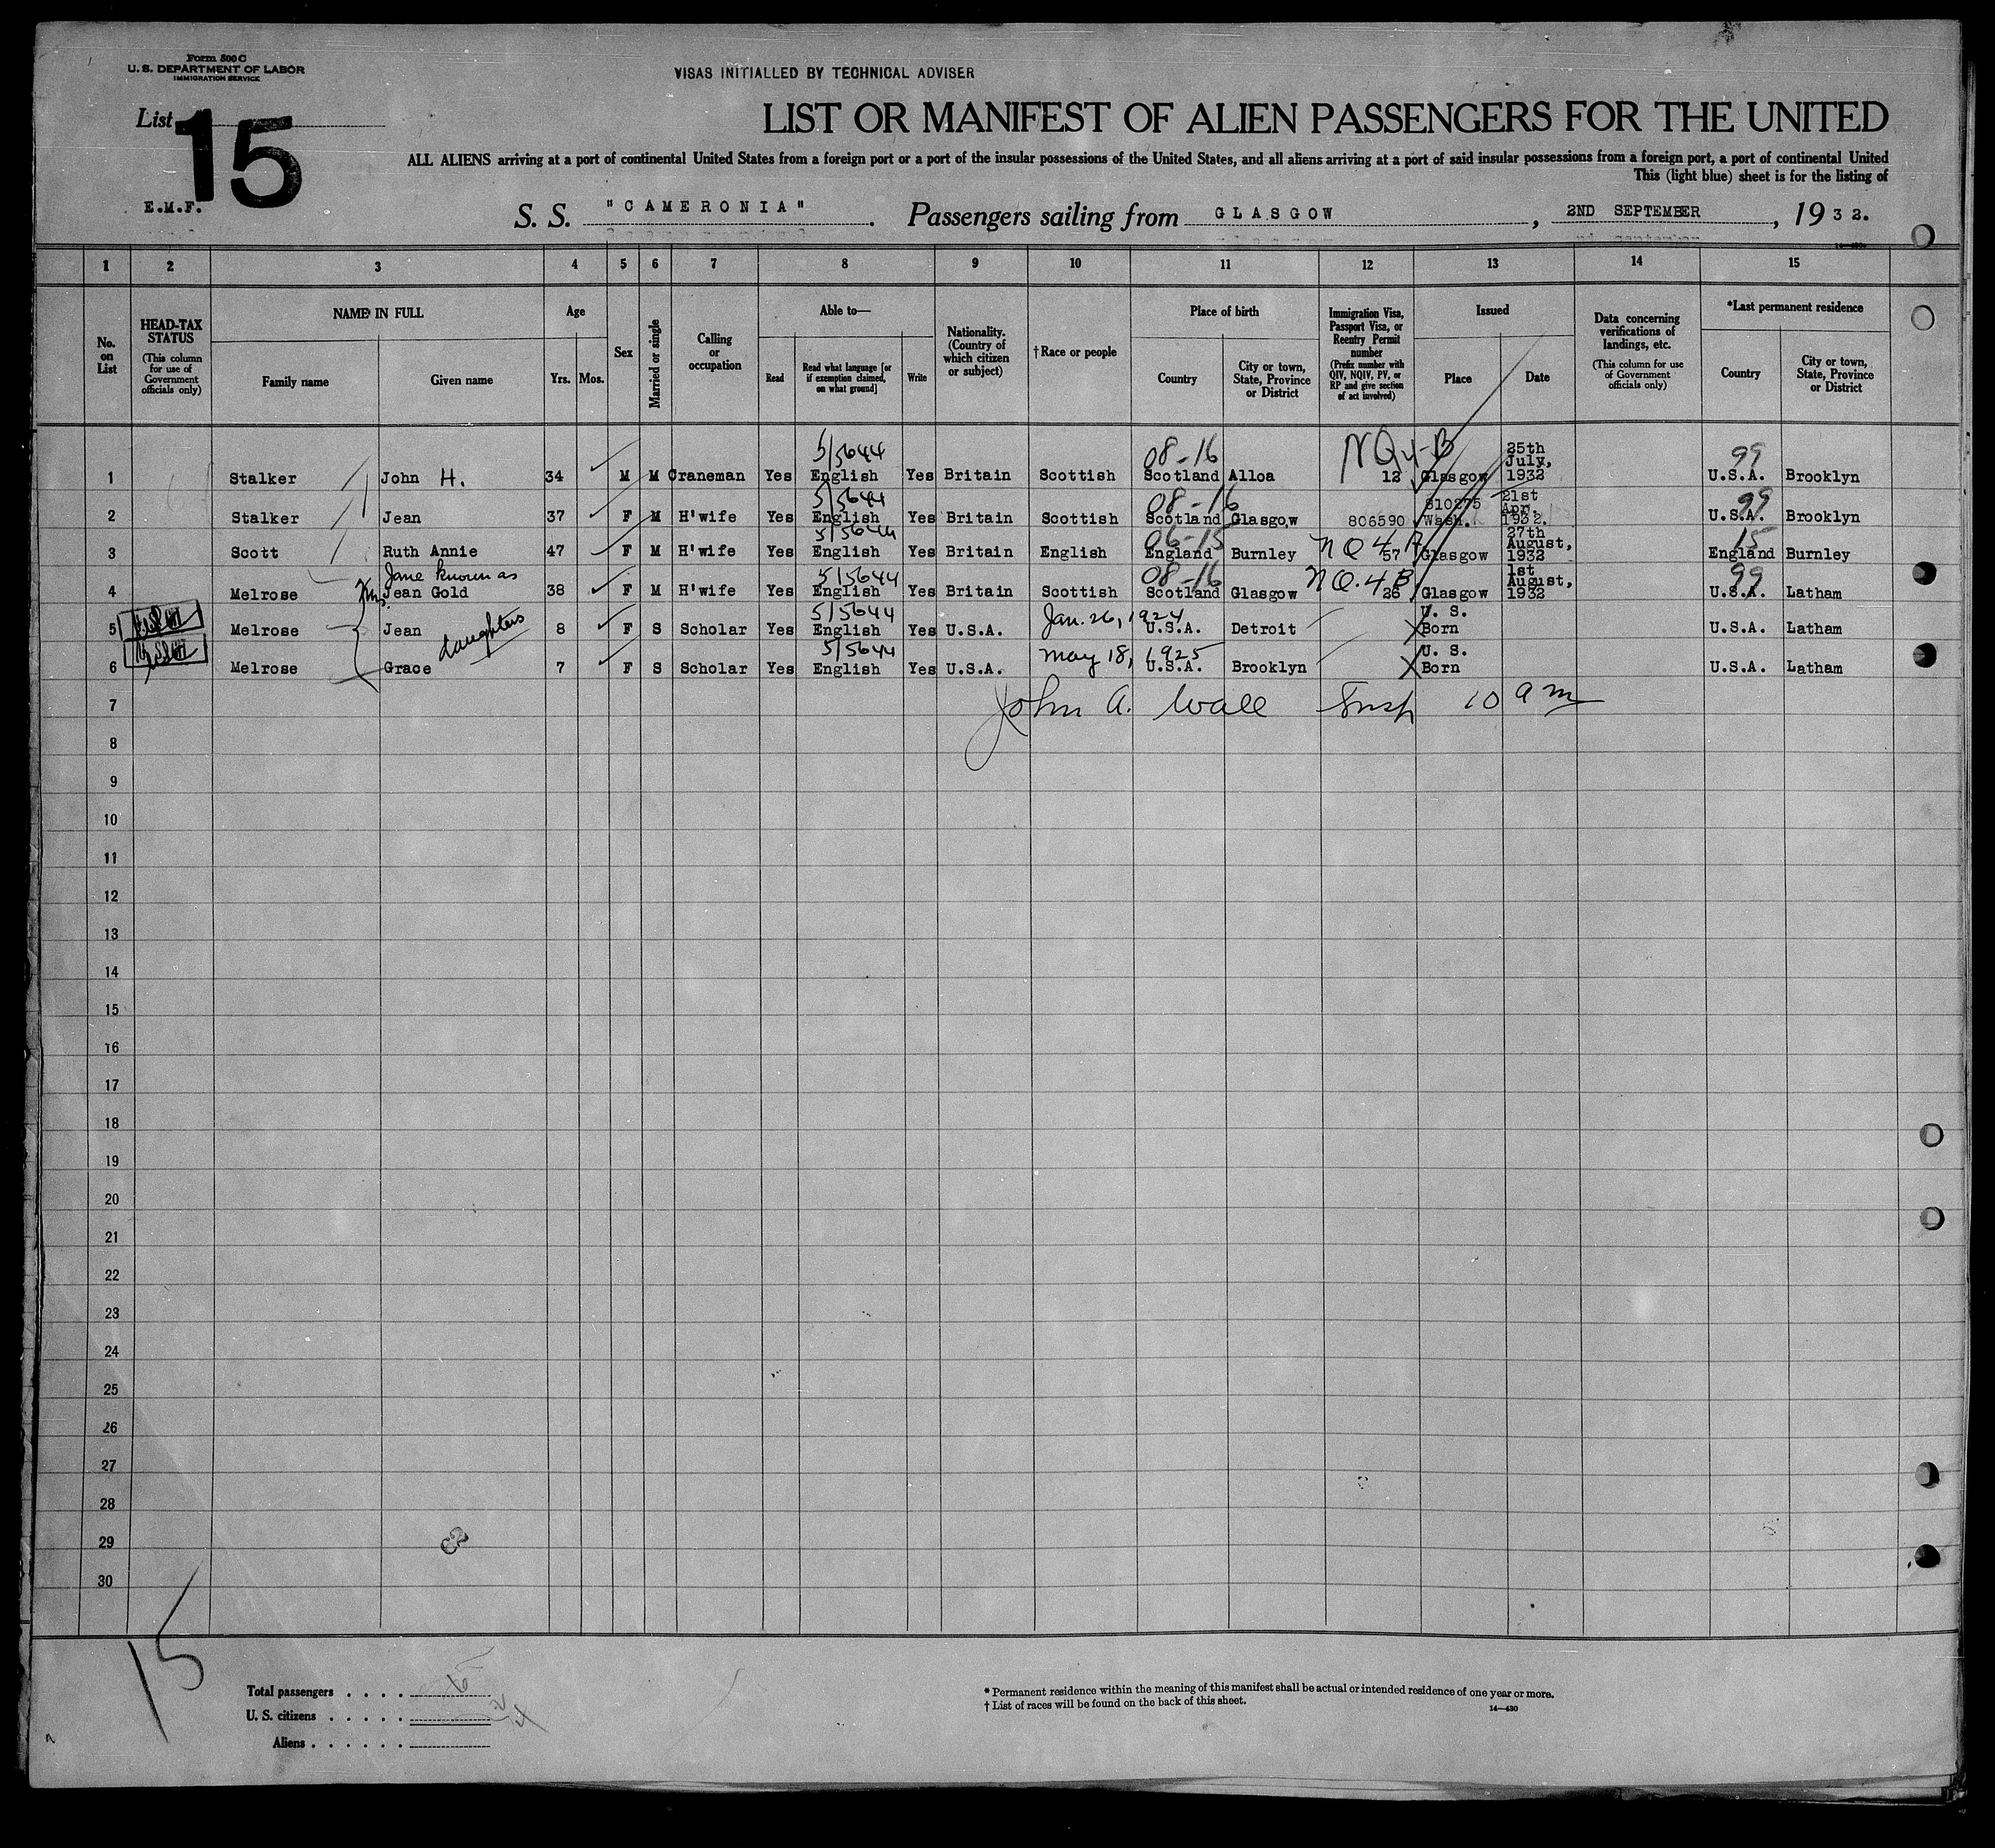 Form 500 C
U. S. DEPARTMENT OF LABOR
IMMIGRATION SERVICE
VISAS INITIALLED BY TECHNICAL ADVISER
List 15
LIST OR MANIFEST OF ALIEN PASSENGERS FOR THE UNITED
ALL ALIENS arriving at a port of continental United States from a foreign port or a port of the insular possessions of the United States, and all aliens arriving at a port of said insular possessions from a foreign port, a port of continental United
This (light blue) sheet is for the listing of
E.M.F. S. S. "CAMERONIA". Passengers sailing from GLASGOW, 2ND SEPTEMBER, 1932.
1 2 3 4 5 6 7 8 9 10 11 12 13 14 15
No. on List
HEAD-TAX STATUS (This column for use of Government officials only)
NAME IN FULL
Family name Given name
Age
Yrs. Mos.
Sex
Married or single
Calling or occupation
Able to—
Read Read what language [or if exemption claimed, on what ground] Write
Nationality. (Country of which citizen or subject)
†Race or people
Place of birth
Country City or town, State, Province or District
Immigration Visa, Passport Visa, or Reentry Permit number (Prefix number with QIV, NQIV, PV, or RP and give section of act involved)
Issued
Place Date
Data concerning verifications of landings, etc. (This column for use of Government officials only)
*Last permanent residence
Country City or town, State, Province or District
5/5644 08-16 NQ4-B 25th July, 99
1 Stalker John H. 34 M M Craneman Yes English Yes Britain Scottish Scotland Alloa 12 Glasgow 1932 U.S.A. Brooklyn
5/5644 08-16 810275 21st Apr. 99
2 Stalker Jean 37 F M H'wife Yes English Yes Britain Scottish Scotland Glasgow 806590 Wash. 1932. U.S.A. Brooklyn
5/5644 06-15 NQ4 27th August, 15
3 Scott Ruth Annie 47 F M H'wife Yes English Yes Britain English England Burnley 57 Glasgow 1932 England Burnley
Jane known as 5/5644 08-16 NQ.4B 1st August, 99
4 Melrose Mrs. Jean Gold 38 F M H'wife Yes English Yes Britain Scottish Scotland Glasgow 26 Glasgow 1932 U.S.A. Latham
5/5644 Jan. 26, 1924 U. S.
5 Melrose Jean daughters 8 F S Scholar Yes English Yes U.S.A. U.S.A. Detroit Born U.S.A. Latham
5/5644 May 18, 1925 U. S.
6 Melrose Grace 7 F S Scholar Yes English Yes U.S.A. U.S.A. Brooklyn Born U.S.A. Latham
7 John A. Wall Insp 10 am
8
9
10
11
12
13
14
15
16
17
18
19
20
21
22
23
24
25
26
27
28
29
30
15
Total passengers . . . . 6
U. S. citizens . . . . . 2
Aliens . . . . . . 4
* Permanent residence within the meaning of this manifest shall be actual or intended residence of one year or more.
† List of races will be found on the back of this sheet.
14—430